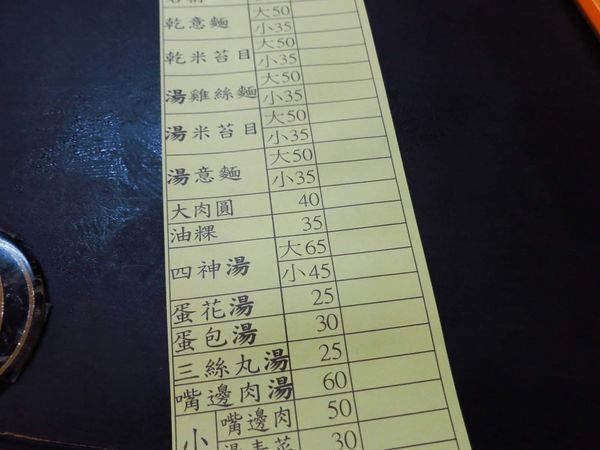 乾意麵 大50
小35
乾米苔目 大50
小35
湯雞絲麵 大50
小35
湯米苔目 大50
小35
湯意麵 大50
小35
大肉圓 40
油粿 35
四神湯 大65
小45
蛋花湯 25
蛋包湯 30
三絲丸湯 25
嘴邊肉湯 60
小 嘴邊肉 50
湯青菜 30